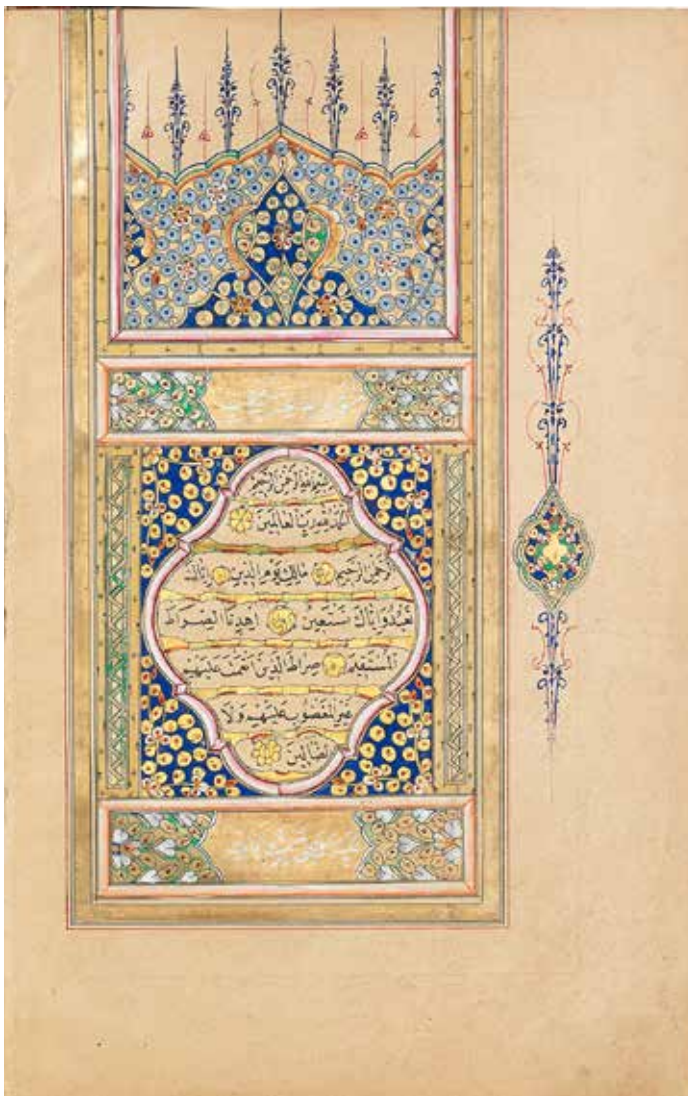 بِسْمِ اللهِ الرَّحْمٰنِ الرَّحِيمِ
اَلْحَمْدُ لِلّٰهِ رَبِّ الْعَالَمِينَ
اَلرَّحْمٰنِ الرَّحِيمِ مَالِكِ يَوْمِ الدِّينِ اِيَّاكَ
نَعْبُدُ وَاِيَّاكَ نَسْتَعِينُ اِهْدِنَا الصِّرَاطَ
الْمُسْتَقِيمَ صِرَاطَ الَّذِينَ اَنْعَمْتَ عَلَيْهِمْ
غَيْرِ الْمَغْضُوبِ عَلَيْهِمْ وَلَا
الضَّالِّينَ